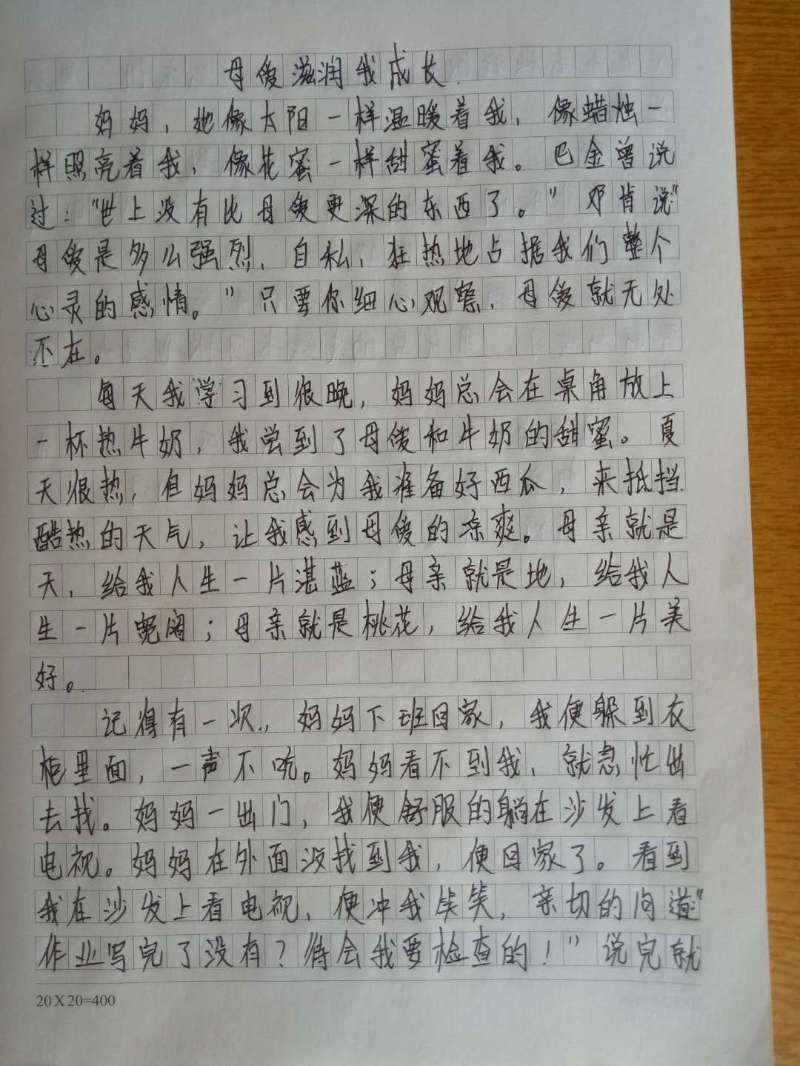 母爱滋润我成长
妈妈，她像太阳一样温暖着我，像蜡烛一
样照亮着我，像花蜜一样甜蜜着我。巴金曾说
过："世上没有比母爱更深的东西了。"邓肯说"
母爱是多么强烈、自私、狂热地占据我们整个
心灵的感情。"只要你细心观察，母爱就无处
不在。
每天我学习到很晚，妈妈总会在桌角放上
一杯热牛奶，我尝到了母爱和牛奶的甜蜜。夏
天很热，但妈妈总会为我准备好西瓜，来抵挡
酷热的天气，让我感到母爱的凉爽。母亲就是
天，给我人生一片湛蓝；母亲就是地，给我人
生一片宽阔；母亲就是桃花，给我人生一片美
好。
记得有一次，妈妈下班回家，我便躲到衣
柜里面，一声不吭。妈妈看不到我，就急忙出
去找。妈妈一出门，我便舒服的躺在沙发上看
电视。妈妈在外面没找到我，便回家了。看到
我在沙发上看电视，便冲我笑笑，亲切的问道"
作业写完了没有？待会我要检查的！"说完就
20X20=400